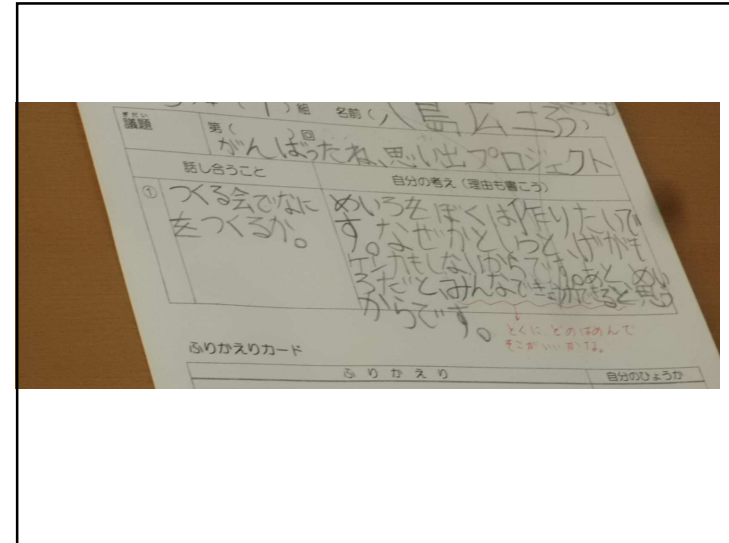 組 名前(八島広
ぎだい
議題 第( )回
がんばったね、思い出プロジェクト
話し合うこと 自分の考え(理由も書こう)
① つくる会でなに
をつくるか。
めいろをぼくは作りたいで
す。なぜかというと、けがも
ケンカもしないからです。あと、めい
ろだと、みんなで
できると思う
からです。
とくに、どのはめんで
そこがいいかな。
ふりかえりカード
ふりかえり 自分のひょうか